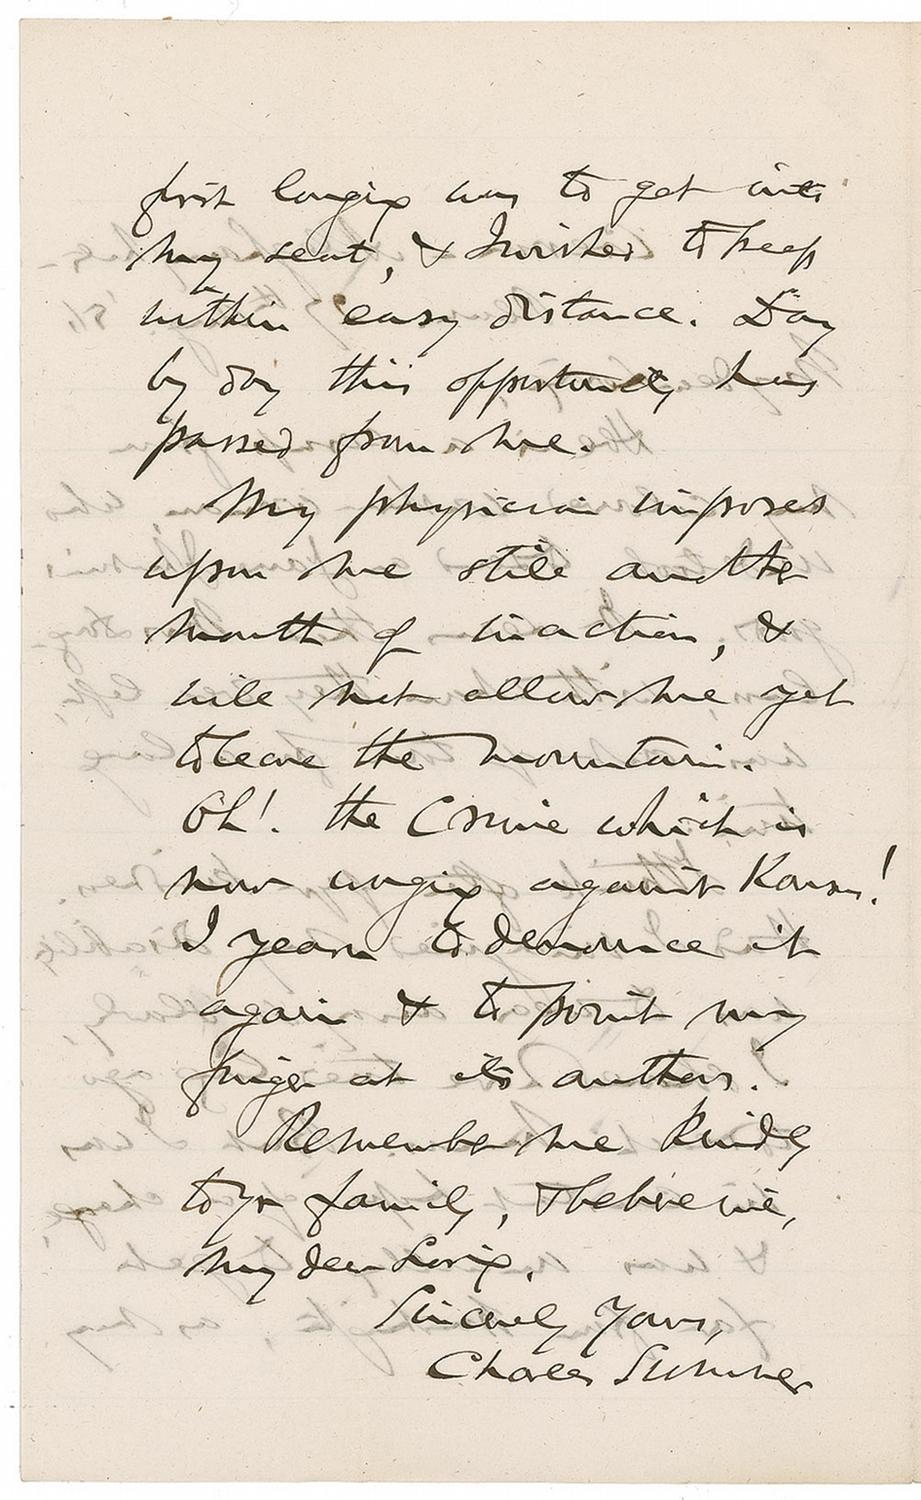 first longing was to get into
my seat, & I wished to keep
within easy distance. Day
by day this opportunity has
passed from me.
My physician imposes
upon me still another
month of inaction, &
will not allow me yet
to leave the mountain.
Oh! the Crime which is
now waging against Kansas!
I yearn to denounce it
again & to point my
finger at its authors.
Remember me kindly
to yr family, & believe me,
my dear Loring,
Sincerely Yours,
Charles Sumner